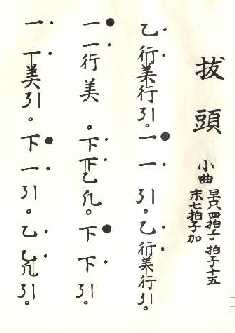 拔頭
小曲
早只四拍子 拍子十五
末七拍子加
乙行美行引。一一引。乙行美行引。
一一行美。下下乙凢。下下引。
一丁美引。下一引。乙凢引。